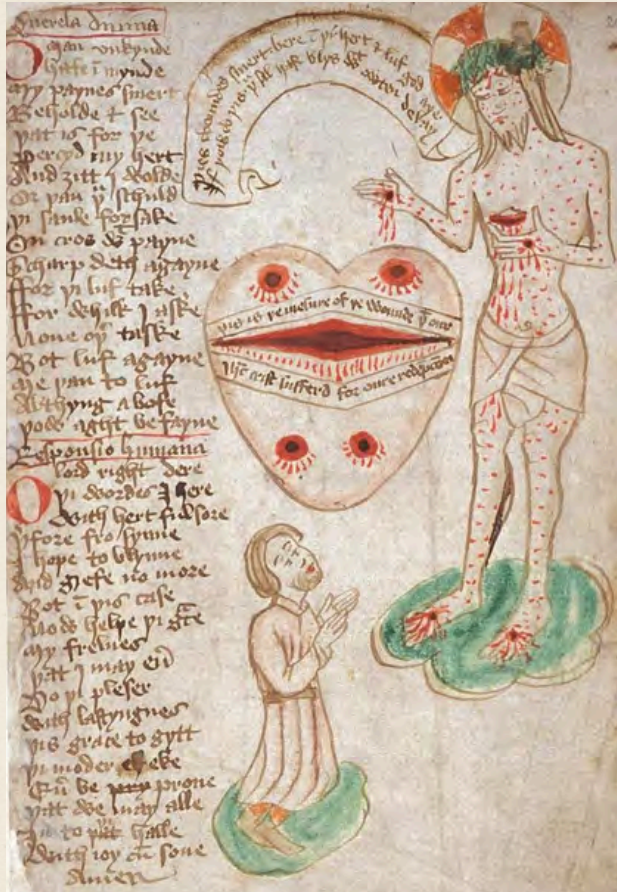 Querela diuina
O man vnkynde
hafe ī mynde
my paynes smert
Beholde & see
þat is for þe
Percyd my hert
And ȝitt I wolde
Or þan þu schuld
þi saule forsake
On cros wt payne
Scharp deth agayne
ffor þi luf take
ffor whilk I aske
None oþ taske
Bot luf agayne
Me þan to luf
Al thyng a bofe
þow aght be fayne
Responsio humana
O lord right dere
þi wordes I here
With hert ful sore
þfore fro synne
I hope to blynne
And grefe no more
Bot ī þis case
Now helpe þi gce
My frelnes
þat I may eū
Do þi pleser
With lastyngnes
þis grace to gytt
þi moder eke
Eū be prone
þat we may alle
In to þat halle
With ioy cū sone
Amen
þies woundes smert bere ī þi hert & luf god aye
If þow do þis þu sal haf blys wt owten delay
þis is þe mesure of þe wounde þt our
Ihc crist sufferd for oure redempcon